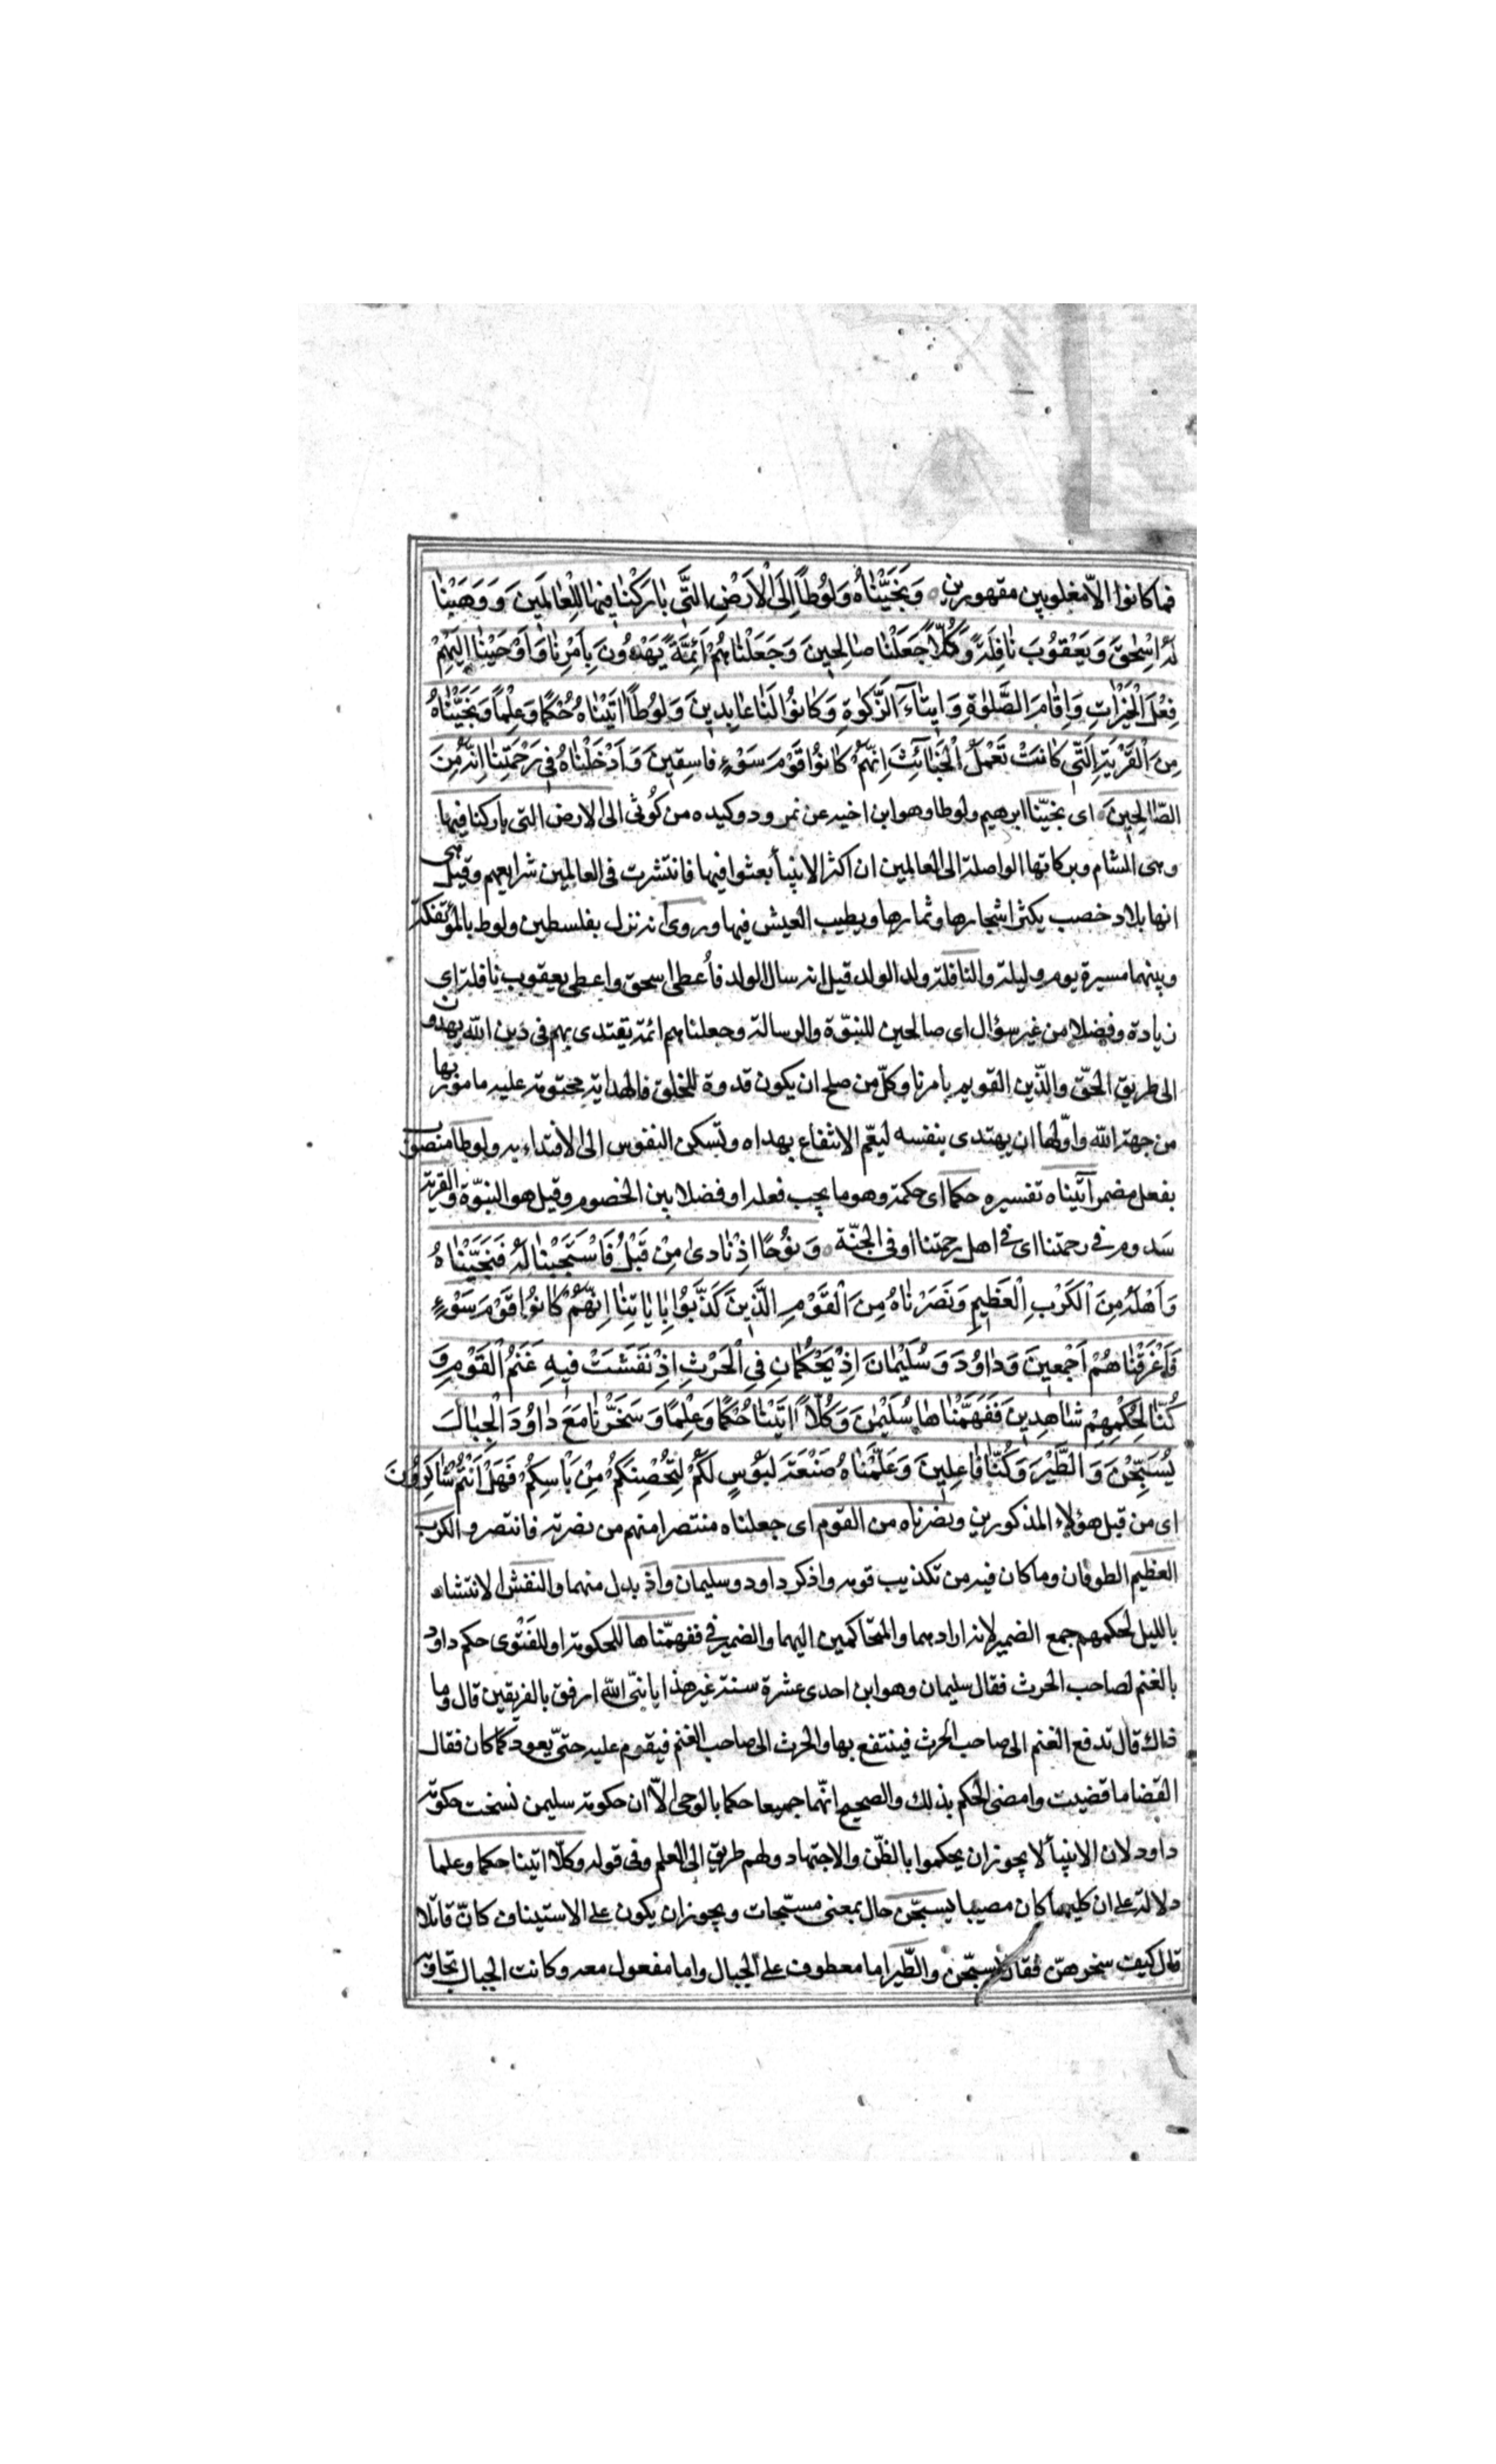 فما كانوا الّا مغلوبين مقهورين وَنَجَّيْنَاهُ وَلُوطًا إِلَى الْأَرْضِ الَّتِي بَارَكْنَا فِيهَا لِلْعَالَمِينَ وَوَهَبْنَا
لَهُ إِسْحٰقَ وَيَعْقُوبَ نَافِلَةً وَكُلًّا جَعَلْنَا صَالِحِينَ وَجَعَلْنَاهُمْ أَئِمَّةً يَهْدُونَ بِأَمْرِنَا وَأَوْحَيْنَا إِلَيْهِمْ
فِعْلَ الْخَيْرَاتِ وَإِقَامَ الصَّلٰوةِ وَإِيتَاءَ الزَّكٰوةِ وَكَانُوا لَنَا عَابِدِينَ وَلُوطًا اٰتَيْنَاهُ حُكْمًا وَعِلْمًا وَنَجَّيْنَاهُ
مِنَ الْقَرْيَةِ الَّتِي كَانَتْ تَعْمَلُ الْخَبَائِثَ إِنَّهُمْ كَانُوا قَوْمَ سَوْءٍ فَاسِقِينَ وَأَدْخَلْنَاهُ فِي رَحْمَتِنَا إِنَّهُ مِنَ
الصَّالِحِينَ اى نجّينا ابرهيم ولوطا وهو ابن اخيه عن نمرود وكيده من كُوثى الى الارض التى باركنا فيها
وهى الشام وبركاتها الواصلة الى العالمين ان اكثر الانبيأ بعثوا فيها فانتشرت فى العالمين شرايعهم وقيل هى
انها بلاد خصب يكثر اشجارها وثمارها ويطيب العيش فيها وروى انه نزل بفلسطين ولوط بالمؤتفكة
وبينهما مسيرة يوم وليلة والنافلة ولد الولد قيل انه سال الولد فأُعطى اسحق واعطى يعقوب نافلة اى
زيادة وفضلا من غير سؤال اى صالحين للنبوّة والرسالة وجعلناهم ائمة يقتدى بهم فى دين اللّه يهدون
الى طريق الحقّ والدّين القويم بامرنا وكلّ من صلح ان يكون قدوة للخلق فالهداية محتومة عليه مامور بها
من جهة اللّه واوّلها ان يهتدى بنفسه ليعّم الانتفاع بهداه وتسكن النفوس الى الاقتداء به ولوطا منصوب
بفعل مضمر آتيناه تفسيره حكما اى حكمة وهو ما يجب فعله او فضلا بين الخصوم وقيل هو النبوّة والقرية
سَدوم فى رحمتنا اى فى اهل رحمتنا او فى الجنّة وَنُوحًا إِذْ نَادٰى مِنْ قَبْلُ فَاسْتَجَبْنَا لَهُ فَنَجَّيْنَاهُ
وَأَهْلَهُ مِنَ الْكَرْبِ الْعَظِيمِ وَنَصَرْنَاهُ مِنَ الْقَوْمِ الَّذِينَ كَذَّبُوا بِاٰيَاتِنَا إِنَّهُمْ كَانُوا قَوْمَ سَوْءٍ
فَأَغْرَقْنَاهُمْ أَجْمَعِينَ وَدَاوُدَ وَسُلَيْمَانَ إِذْ يَحْكُمَانِ فِي الْحَرْثِ إِذْ نَفَشَتْ فِيهِ غَنَمُ الْقَوْمِ وَ
كُنَّا لِحُكْمِهِمْ شَاهِدِينَ فَفَهَّمْنَاهَا سُلَيْمٰنَ وَكُلًّا اٰتَيْنَا حُكْمًا وَعِلْمًا وَسَخَّرْنَا مَعَ دَاوُدَ الْجِبَالَ
يُسَبِّحْنَ وَالطَّيْرَ وَكُنَّا فَاعِلِينَ وَعَلَّمْنَاهُ صَنْعَةَ لَبُوسٍ لَكُمْ لِتُحْصِنَكُمْ مِنْ بَأْسِكُمْ فَهَلْ أَنْتُمْ شَاكِرُونَ
اى من قبل هؤلاء المذكورين ونصرناه من القوم اى جعلناه منتصرا منهم من نصرته فانتصر والكرب
العظيم الطوفان وما كان فيه من تكذيب قومه واذكر داود وسليمان واذ بدل منهما والنفش الانتشار
بالليل لحكمهم جمع الضمير لانه ارادهما والمتحاكمين اليهما والضمير فى ففهّمناها للحكومة او للفَتْوى حكم داود
بالغنم لصاحب الحرث فقال سليمان وهو ابن احدى عشرة سنة غير هذا يا نبّى اللّه ارفق بالفريقين قال وما
ذاك قال تدفع الغنم الى صاحب الحرث فينتفع بها والحرث الى صاحب الغنم فيقوم عليه حتّى يعود كما كان فقال
القضا ما قضيت وامضى الحكم بذلك والصحيح انّهما جميعا حكما بالوحى الّا ان حكومة سليمن نسخت حكومة
داود لان الانبيأ لا يجوز ان يحكموا بالظّن والاجتهاد ولهم طريق الى العلم وفى قوله وكلّا اتينا حكما وعلما
دلالة على ان كليهما كان مصيبا يسبّحن حال بمعنى مسبّحات ويجوز ان يكون على الاستيناف كانّ قائلا
قال كيف سخرهنّ فقال يسبّحن والطّير اما معطوف على الجبال واما مفعول معه وكانت الجبال تجاوبه